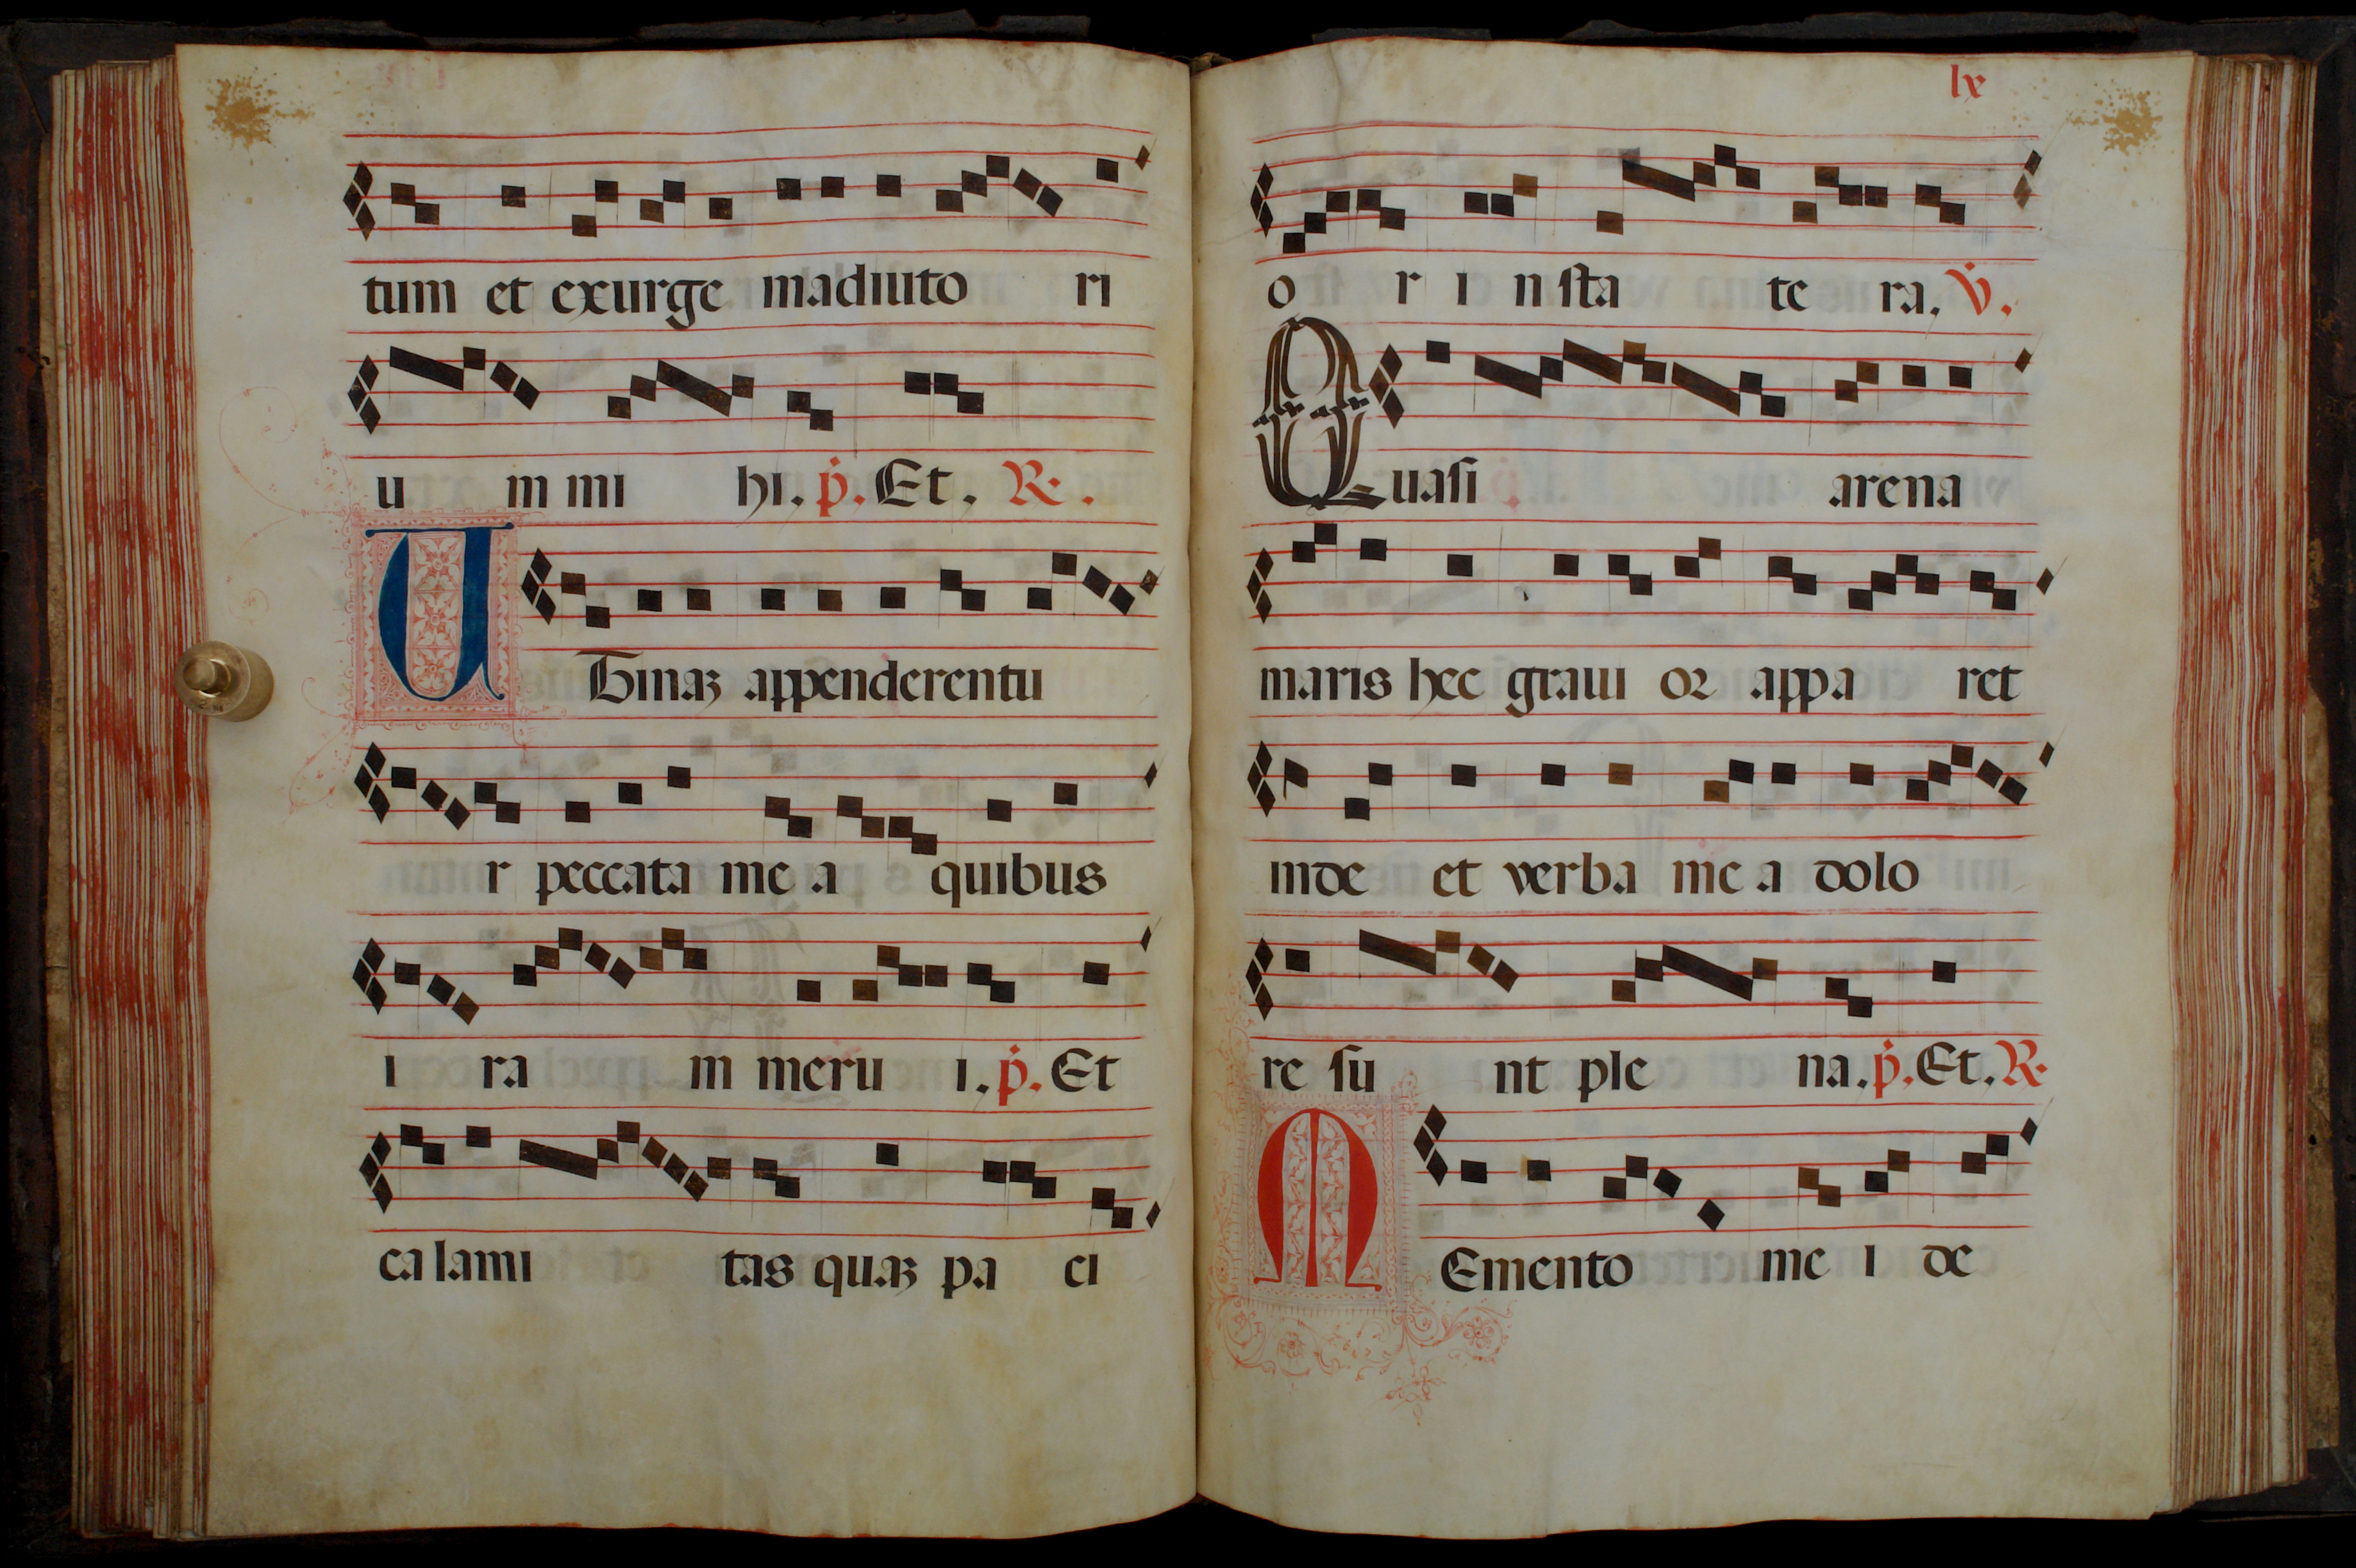 tum et exurge in adiuto ri
u m mi hi. p. Et. R.
UTinaʒ appenderentu
r peccata me a quibus
i ra m meru i. p. Et
ca lami tas quaʒ pa ci
lx
o r i n sta te ra. V.
Quasi arena
maris hec graui or appa ret
inde et verba me a dolo
re su nt ple na. p. Et. R.
MEmento me i de